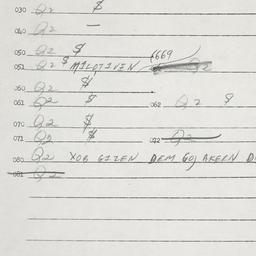 030 Q2 $
040 Q2 —
050 Q2 $
051 Q2 $ MILQTIVEN 6669 Q2
060 Q2 $
061 Q2 $ 062 Q2 $
070 Q2 $
071 Q2 $ 072 Q2
080 Q2 XOB GIZEN DEM GOJ AKERN D
081 Q2